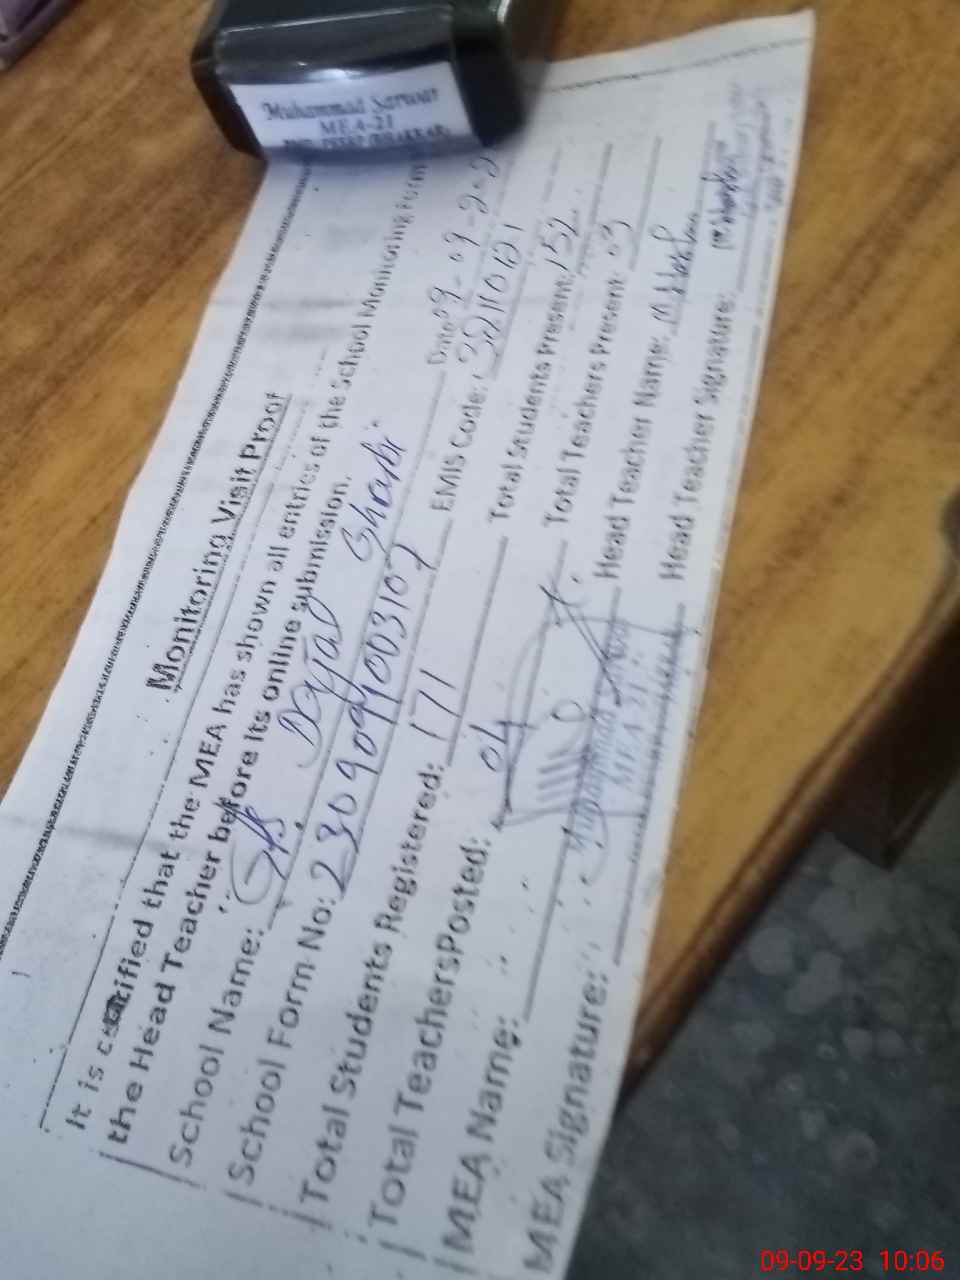 Muhammad Sarwar
MEA-21
Monitoring Visit Proof
It is certified that the MEA has shown all entries of the School Monitoring Form
the Head Teacher before its online submission.
School Name: GPS Dajal Gharbi Date: 09-09-202
School Form No: 2309090003107 EMIS Code:
Total Students Registered: 171 Total Students Present: 152
Total TeachersPosted: 04 Total Teachers Present: 03
MEA Name: Head Teacher Name:
MEA Signature: Head Teacher Signature:
09-09-23 10:06